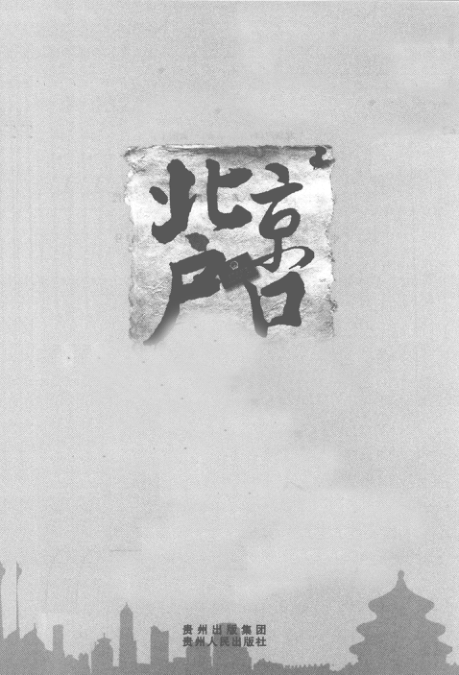 北京
户口
贵州出版集团
贵州人民出版社